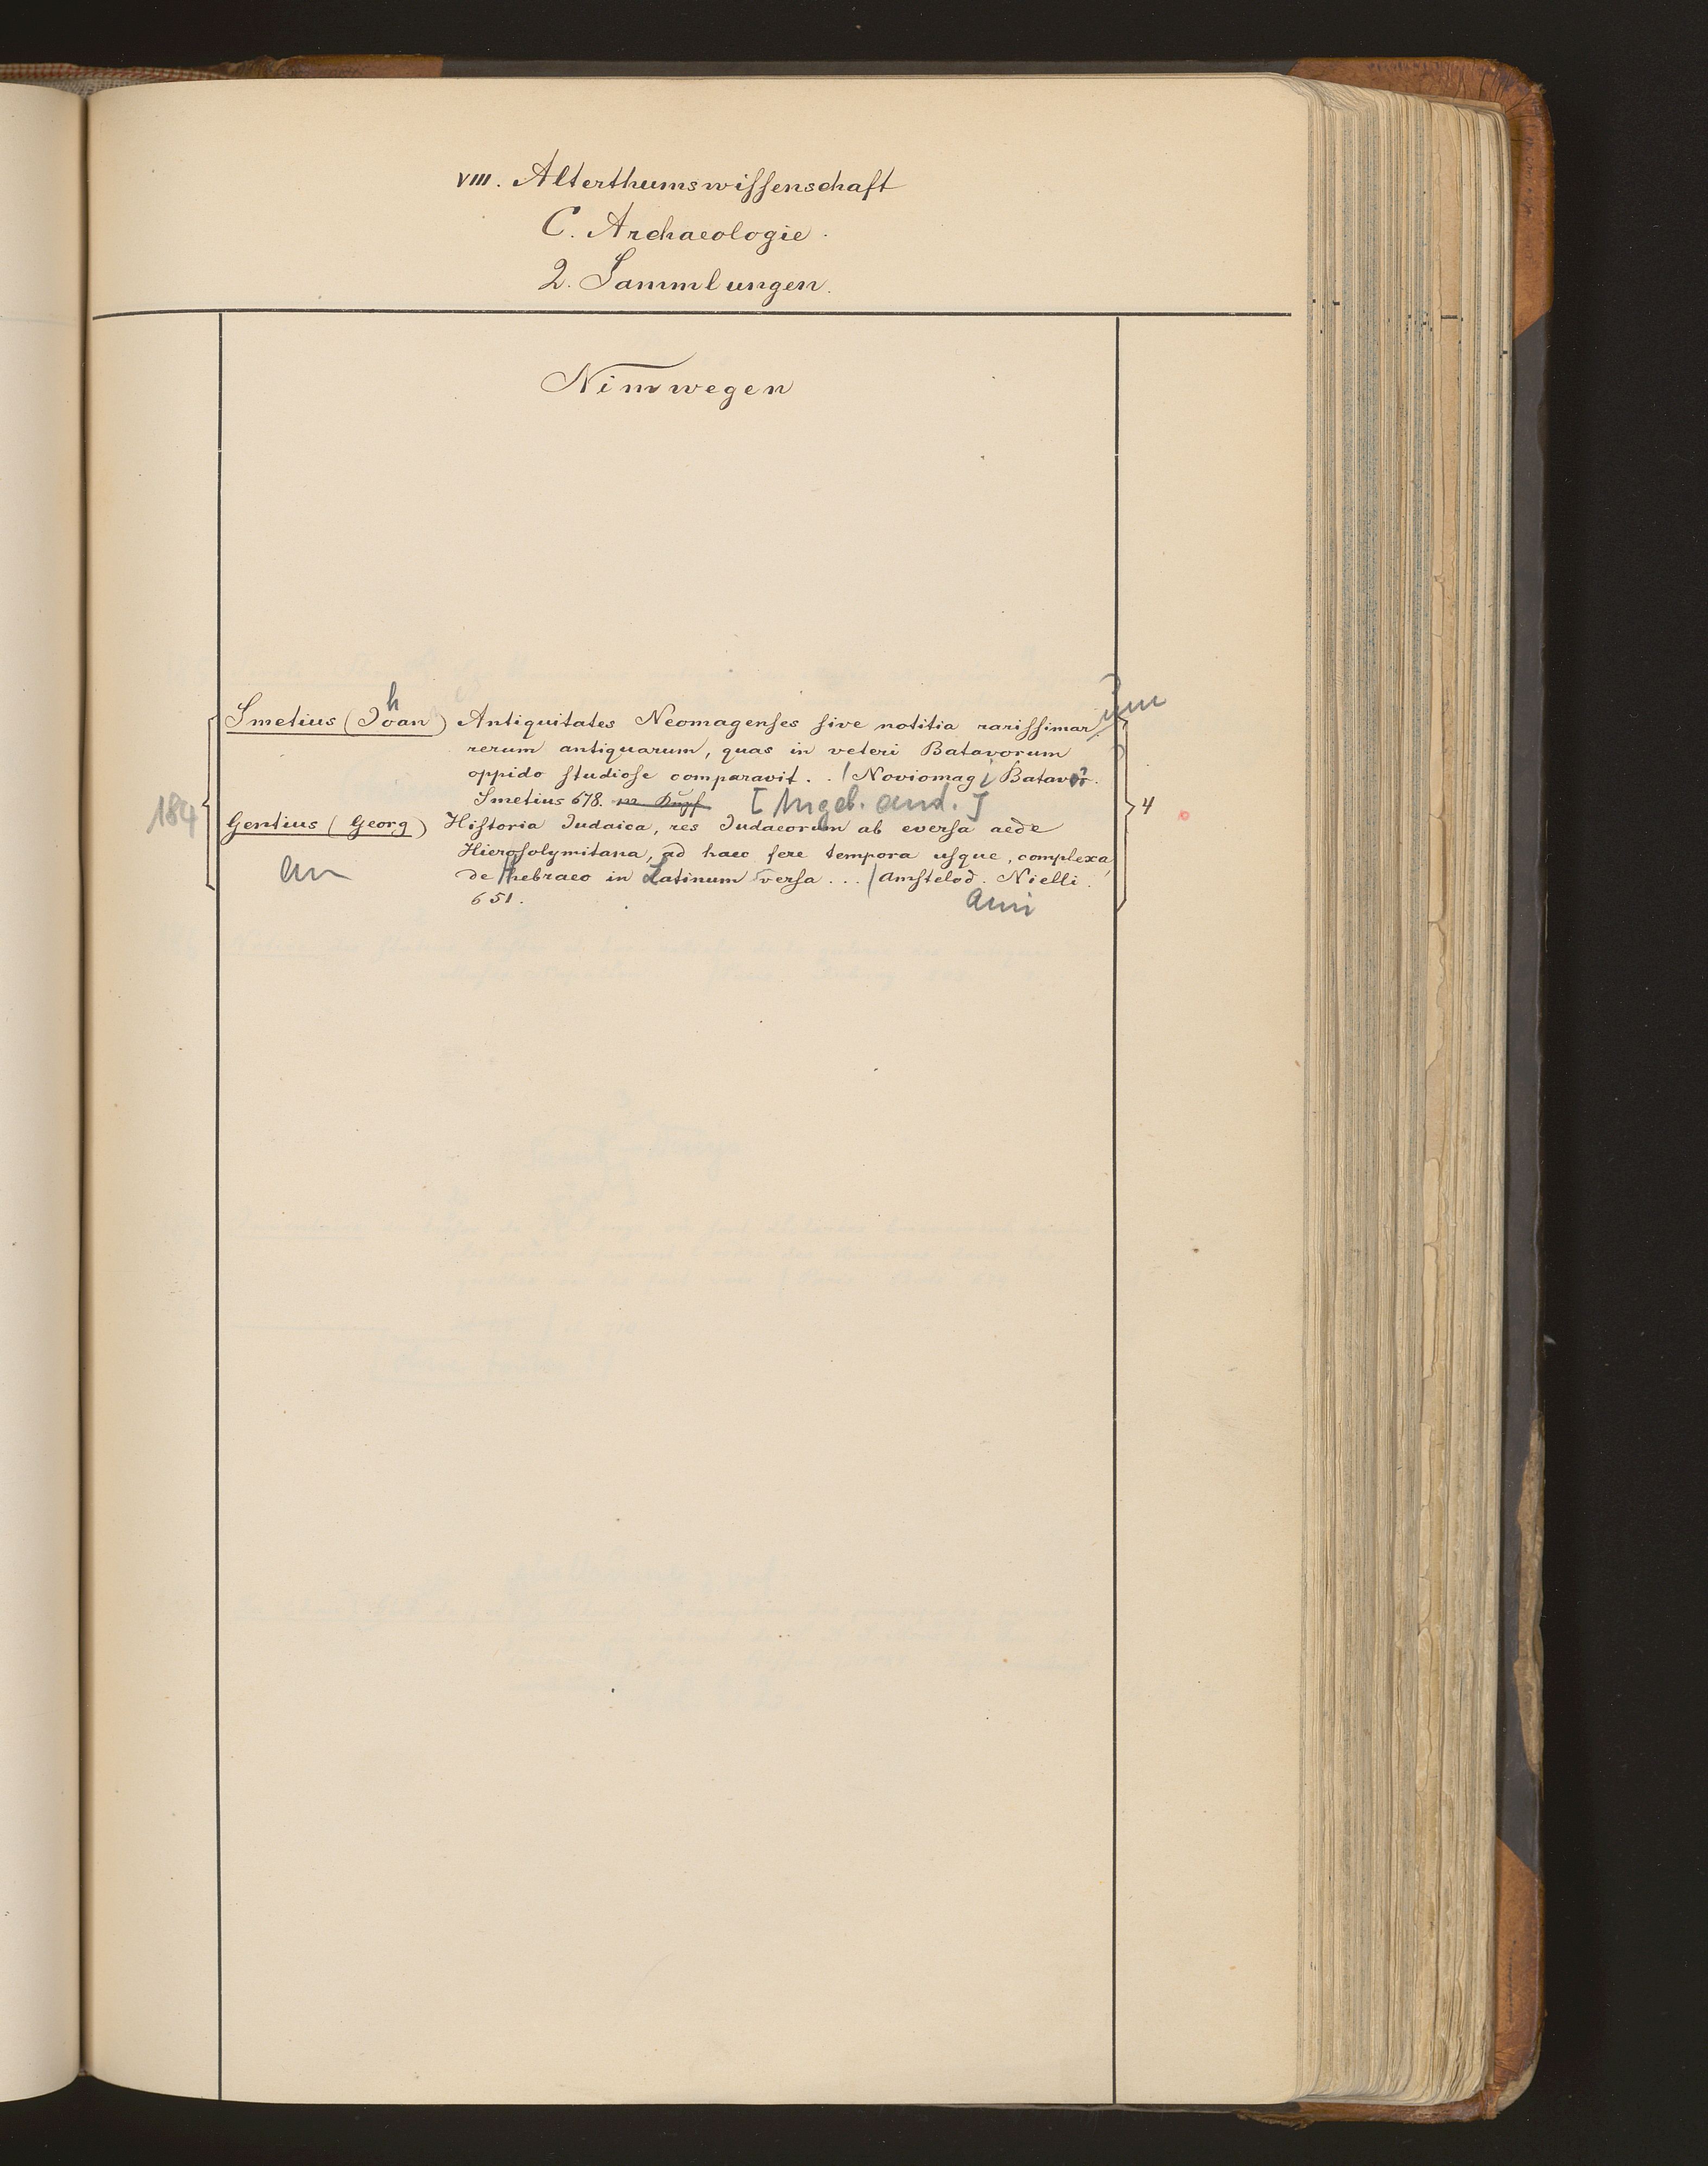 VIII. Alterthumswiſſenschaft
C. Archaeologie.
2. Sammlungen.
Nimwegen
184
Smetius (Johan) Antiquitates Neomagenſes ſive notitia rariſſimar um
rerum antiquarum, quas in veteri Batavorum
oppido ſtudioſe comparavit. . / Noviomagi Batavor.
Smetius 678. m Kupf [Angeb. and.]
4
Gentius (Georg) Hiſtoria Judaica, res Judaeorum ab everſa aede
Hieroſolymitana, ad haec fere tempora uſque, complexa,
an de hebraeo in Latinum verſa ... / Amſtelod. Nielli.
651.
ami